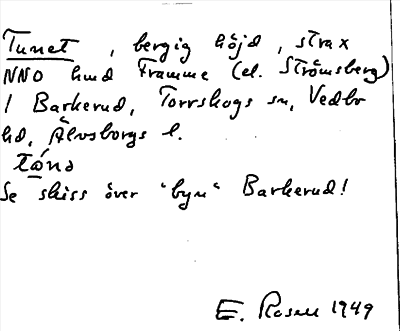 Tunet, bergig höjd, strax
NNO hmd Framme (el. Strömsberg)
/ Barkerud, Torrskogs sn, Vedbo
hd, Älvsborgs l.
tá̱nə
Se skiss över "byn" Barkerud!
E. Rosell 1949